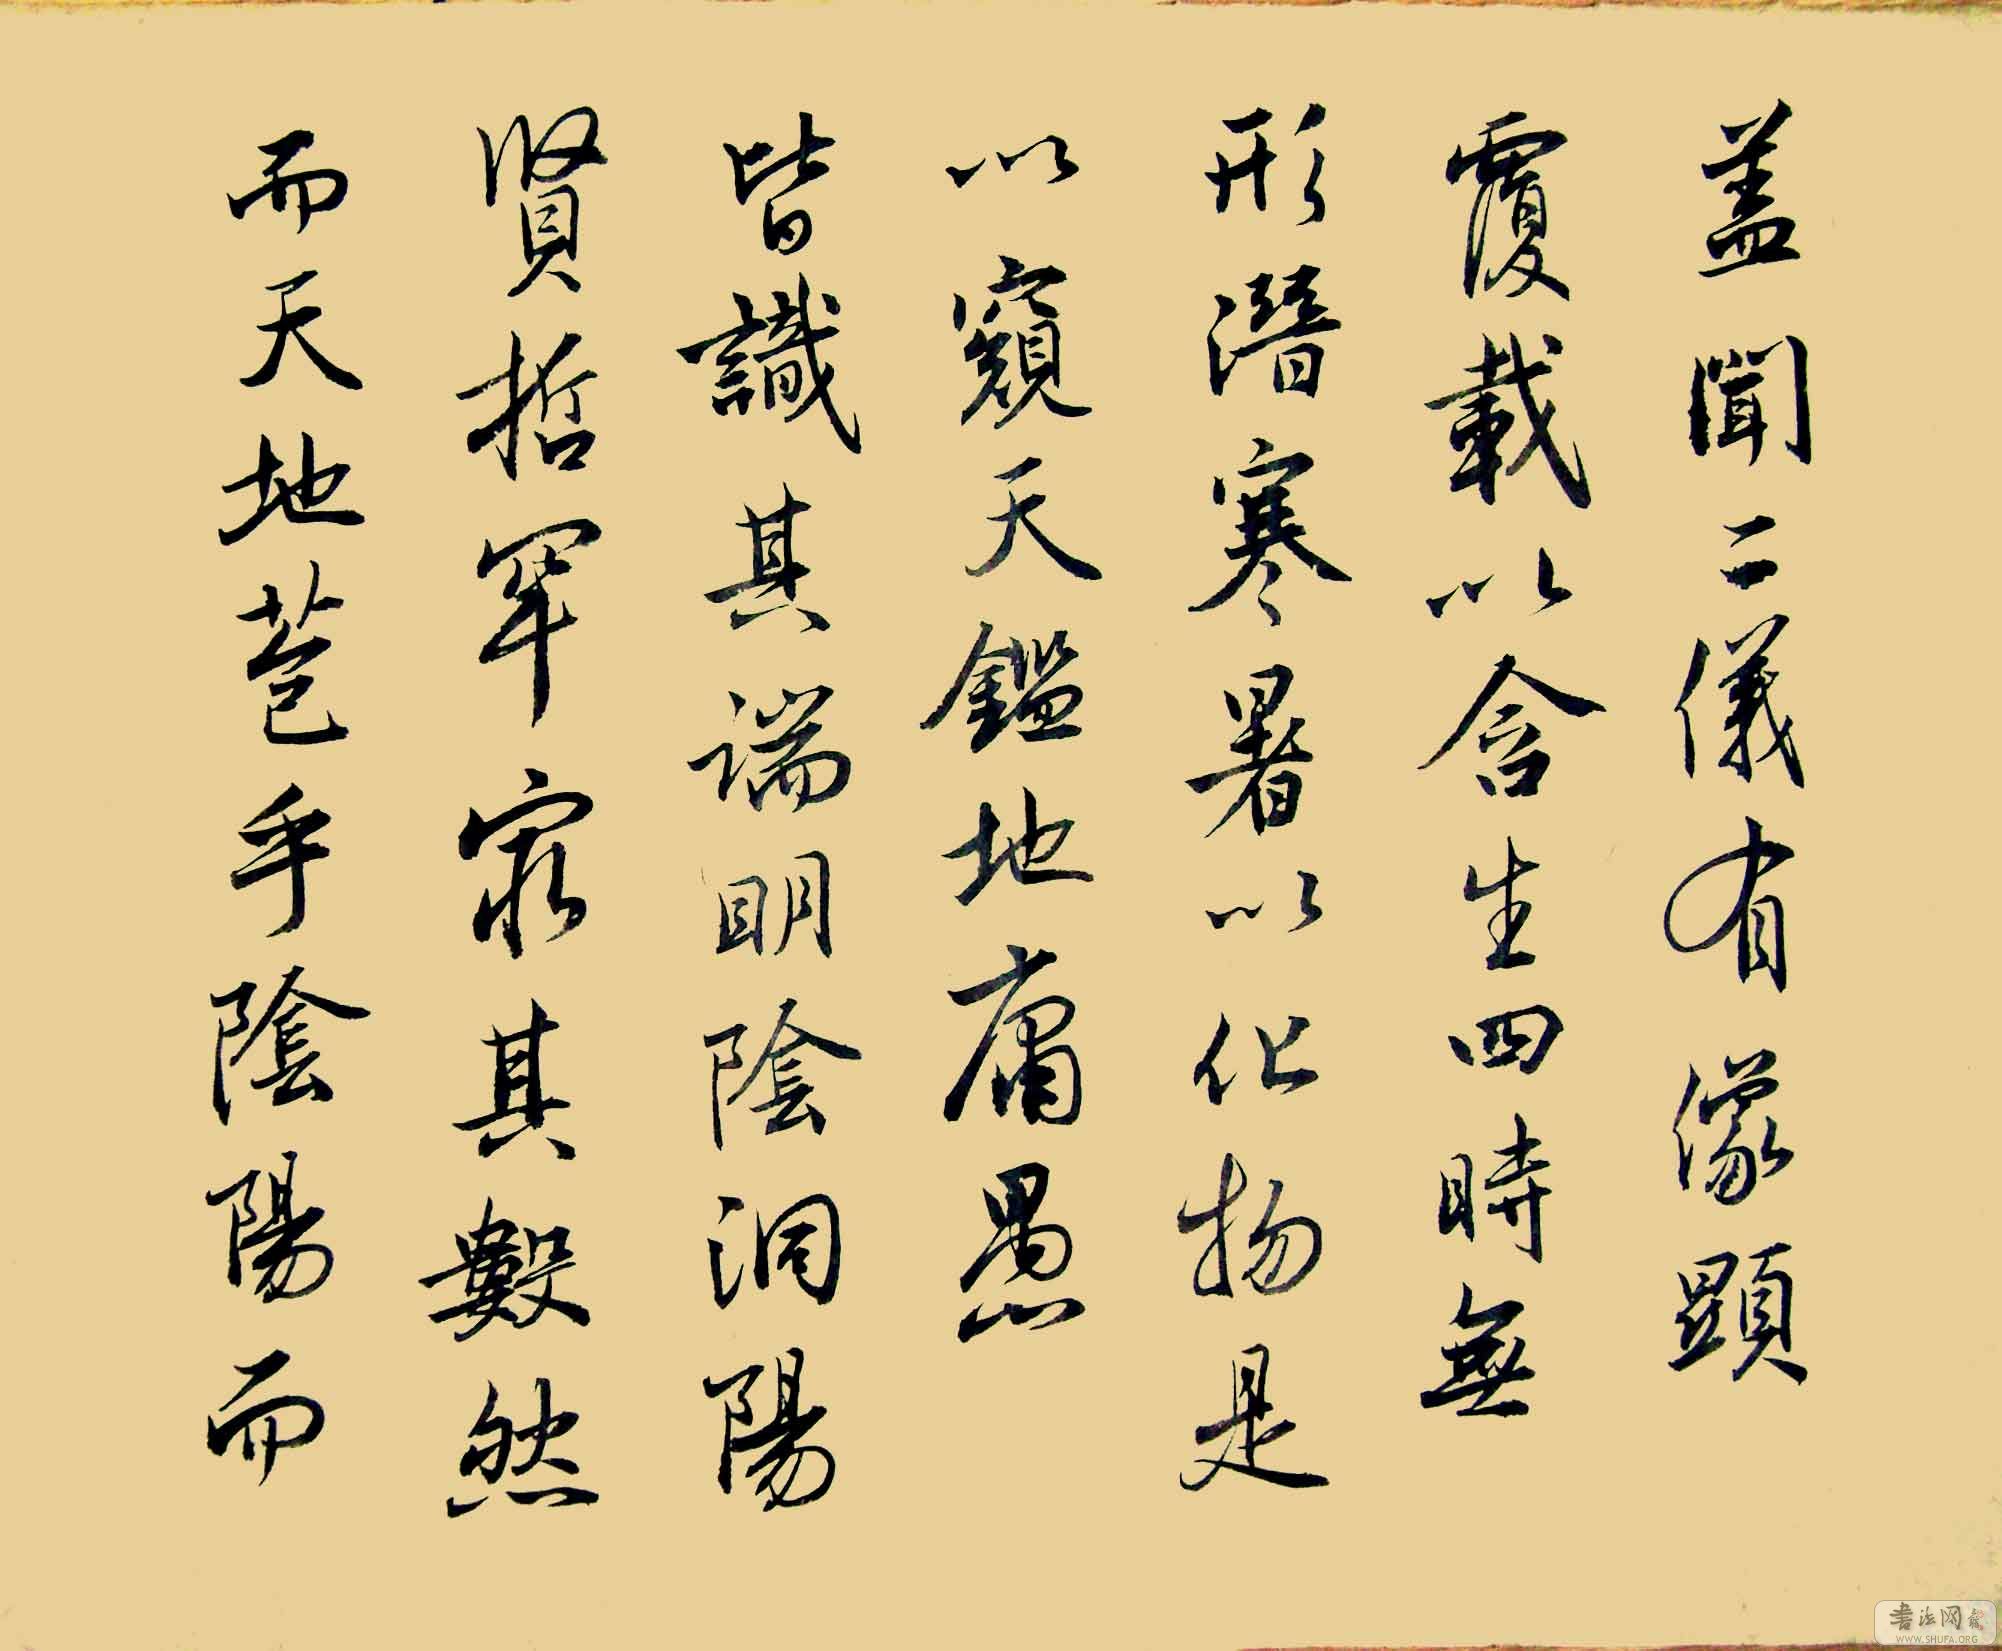 蓋聞二儀有像顯
覆載以含生四時無
形潛寒暑以化物是
以窺天鑑地庸愚
皆識其端明陰洞陽
賢哲罕窮其數然
而天地苞乎陰陽而
書法网
WWW.SHUFA.ORG